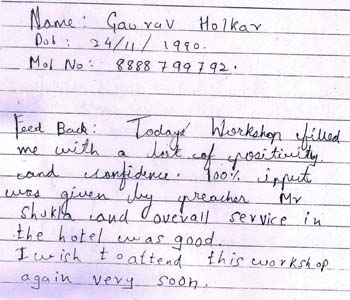 Name: Gaurav Holkar
Dob: 24/11/1990.
Mob No: 8888799792.
Feed Back: Todays Workshop filled
me with a lot of positivity
and confidence. 100% input
was given by preacher Mr
Shukla and overall service in
the hotel was good.
I wish to attend this workshop
again very soon.